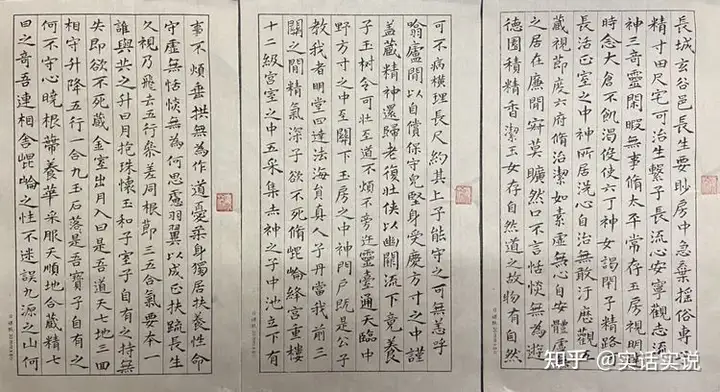 長城玄谷邑長生要眇房中急棄捐俗專守
精寸田尺宅可治生繫子長流心安寧觀志流
神三奇靈閑暇無事脩太平常存玉房視明達
時念大倉不飢渴役使六丁神女謁閉子精路可
長活正室之中神所居洗心自治無敢汙歷觀五
藏視節度六府脩治潔如素虛無心自安體虛無
之居在廉間寂莫曠然口不言恬惔無為遊
德園積精香潔玉女存自然道之故物有自然
可不病橫理長尺約其上子能守之可無恙呼
噏廬間以自償保守完堅身受慶方寸之中謹
蓋藏精神還歸老復壯俠以幽闕流下竟養
子玉树令可壯至道不煩不旁迕靈臺通天臨中
野方寸之中至關下玉房之中神門戶既是公子
教我者明堂四達法海員真人子丹當我前三
關之間精氣深子欲不死脩崐崘絳宮重樓
十二級宮室之中五采集赤神之子中池立下有
事不煩垂拱無為作道憂柔身獨居扶養性命
守虛無恬惔無為何思慮羽翼以成正扶疏長生
久視乃飛去五行參差同根節三五合氣要本一
誰與共之升日月抱珠懷玉和子室子自有之持無
失即欲不死藏金室出月入日是吾道天七地三回
相守升降五行一合九玉石落是吾寶子自有之
何不守心曉根蔕養華采服天順地合藏精七
日之奇吾連相舍崐崘之性不迷誤九源之山何
知乎 @实话实说